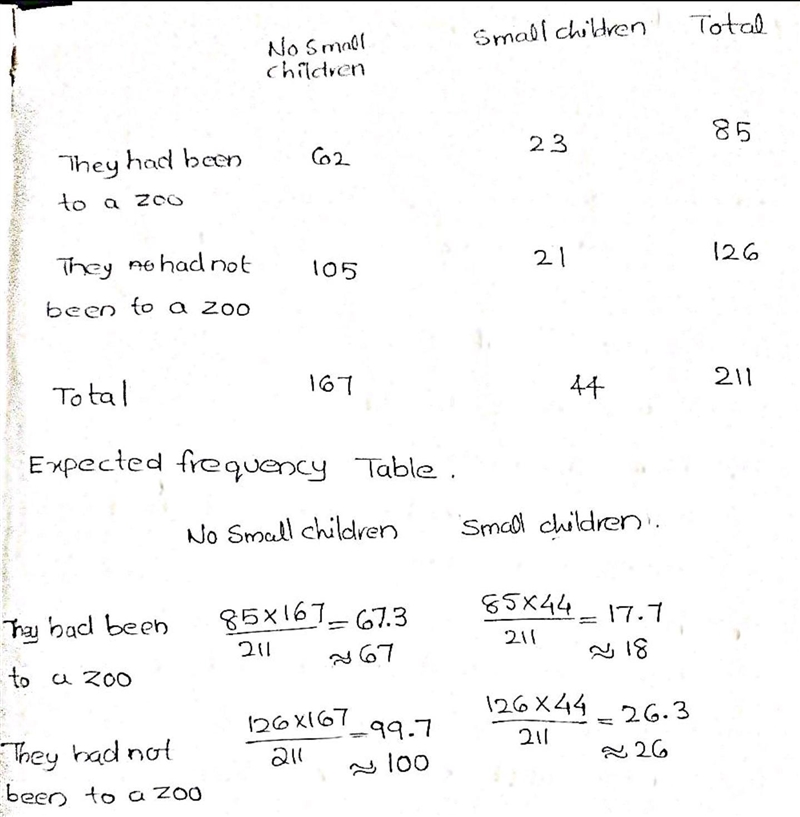 No Small children Small children Total
They had been to a zoo 62 23 85
They no had not been to a zoo 105 21 126
Total 167 44 211
Expected frequency Table.
No Small children Small children.
They had been to a zoo 85×167/211 = 67.3 ≈ 67 85×44/211 = 17.7 ≈ 18
They had not been to a zoo 126×167/211 = 99.7 ≈ 100 126×44/211 = 26.3 ≈ 26